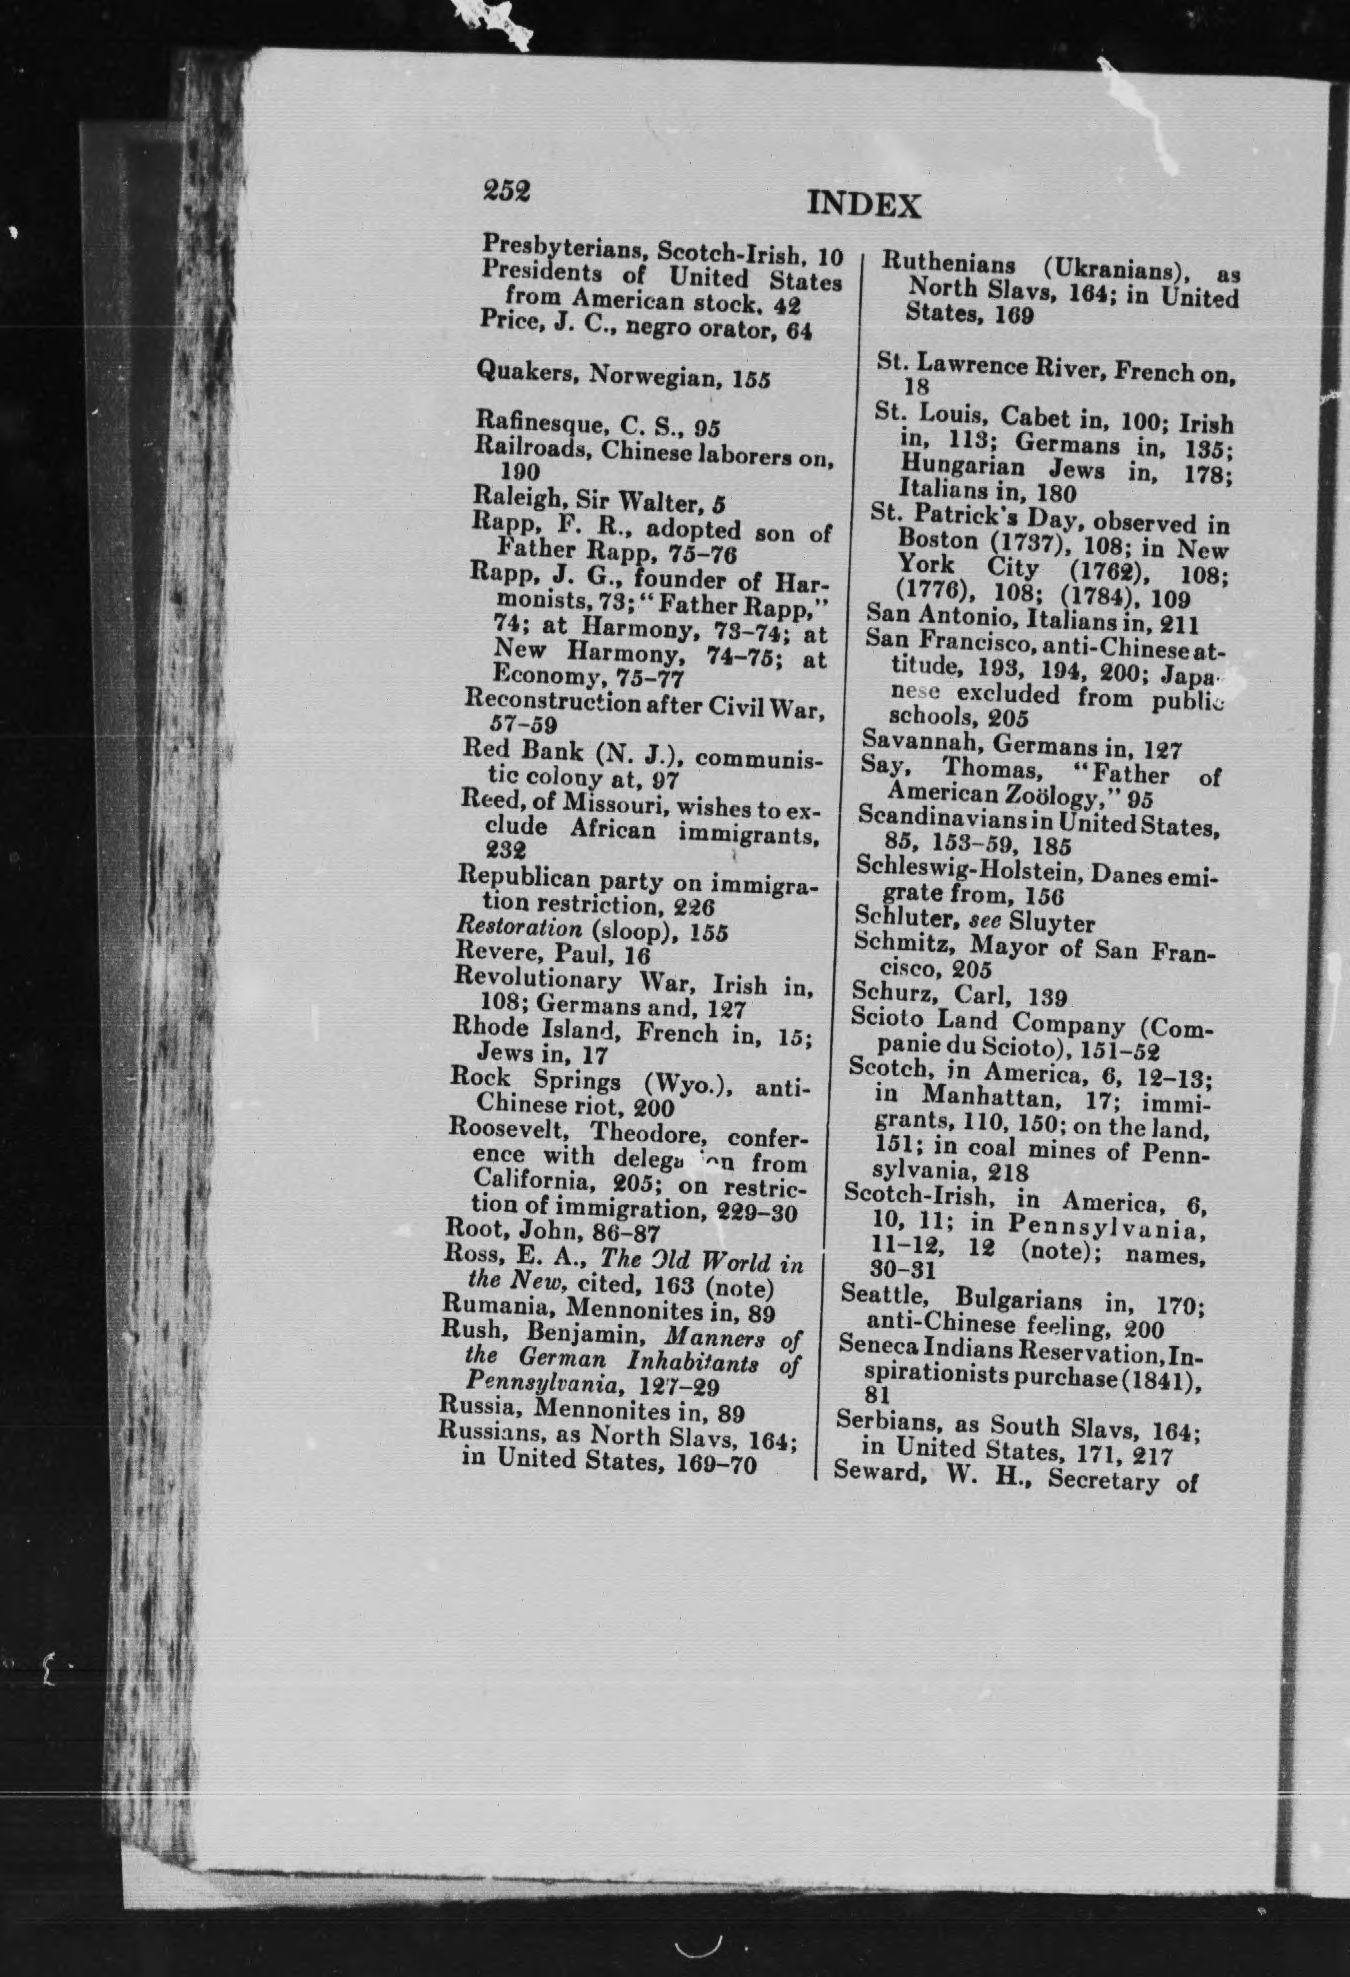 252
INDEX
Presbyterians, Scotch-Irish, 10
Presidents of United States
from American stock, 42
Price, J. C., negro orator, 64
Quakers, Norwegian, 155
Rafinesque, C. S., 95
Railroads, Chinese laborers on,
190
Raleigh, Sir Walter, 5
Rapp, F. R., adopted son of
Father Rapp, 75-76
Rapp, J. G., founder of Har-
monists, 73; "Father Rapp,"
74; at Harmony, 73-74; at
New Harmony, 74-75; at
Economy, 75-77
Reconstruction after Civil War,
57-59
Red Bank (N. J.), communis-
tic colony at, 97
Reed, of Missouri, wishes to ex-
clude African immigrants,
232
Republican party on immigra-
tion restriction, 226
Restoration (sloop), 155
Revere, Paul, 16
Revolutionary War, Irish in,
108; Germans and, 127
Rhode Island, French in, 15;
Jews in, 17
Rock Springs (Wyo.), anti-
Chinese riot, 200
Roosevelt, Theodore, confer-
ence with from
California, 205; on restric-
tion of immigration, 229-30
Root, John, 86-87
Ross, E. A., The Old World in
the New, cited, 163 (note)
Rumania, Mennonites in, 89
Rush, Benjamin, Manners of
the German Inhabitants of
Pennsylvania, 127-29
Russia, Mennonites in, 89
Russians, as North Slavs, 164;
in United States, 169-70
Ruthenians (Ukranians), as
North Slavs, 164; in United
States, 169
St. Lawrence River, French on,
18
St. Louis, Cabet in, 100; Irish
in, 113; Germans in, 135;
Hungarian Jews in, 178;
Italians in, 180
St. Patrick's Day, observed in
Boston (1737), 108; in New
York City (1762), 108;
(1776), 108; (1784), 109
San Antonio, Italians in, 211
San Francisco, anti-Chinese at-
titude, 193, 194, 200; Japa-
nese excluded from public
schools, 205
Savannah, Germans in, 127
Say, Thomas, "Father of
American Zoölogy," 95
Scandinavians in United States,
85, 153-59, 185
Schleswig-Holstein, Danes emi-
grate from, 156
Schluter, see Sluyter
Schmitz, Mayor of San Fran-
cisco, 205
Schurz, Carl, 139
Scioto Land Company (Com-
panie du Scioto), 151-52
Scotch, in America, 6, 12-13;
in Manhattan, 17; immi-
grants, 110, 150; on the land,
151; in coal mines of Penn-
sylvania, 218
Scotch-Irish, in America, 6,
10, 11; in Pennsylvania,
11-12, 12 (note); names,
30-31
Seattle, Bulgarians in, 170;
anti-Chinese feeling, 200
Seneca Indians Reservation, In-
spirationists purchase (1841),
81
Serbians, as South Slavs, 164;
in United States, 171, 217
Seward, W. H., Secretary of